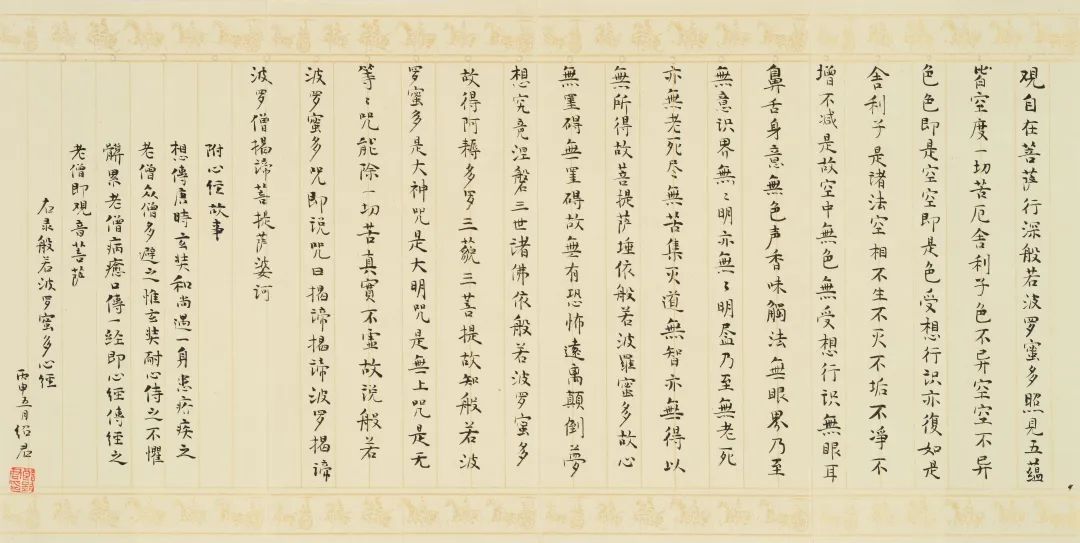 观自在菩萨行深般若波罗蜜多照見五蕴
皆空度一切苦厄舍利子色不异空空不异
色色即是空空即是色受想行识亦復如是
舍利子是诸法空相不生不灭不垢不凈不
增不减是故空中無色無受想行识無眼耳
鼻舌身意無色声香味觸法無眼界乃至
無意识界無〻明亦無〻明尽乃至無老死
亦無老死尽無苦集灭道無智亦無得以
無所得故菩提萨埵依般若波羅蜜多故心
無罣碍無罣碍故無有恐怖遠离顛倒夢
想究竟涅磐三世诸佛依般若波罗蜜多
故得阿耨多罗三藐三菩提故知般若波
罗蜜多是大神咒是大明咒是無上咒是无
等〻咒能除一切苦真實不虚故说般若
波罗蜜多咒即说咒曰揭谛揭谛波罗揭谛
波罗僧揭谛菩提萨婆诃
附心经故事
想傳唐時玄奘和尚遇一身患疥疾之
老僧众僧多避之惟玄奘耐心侍之不懼
髒累老僧病癒口傳一经即心经傳经之
老僧即观音菩萨
右录般若波罗蜜多心经
丙申五月绍君